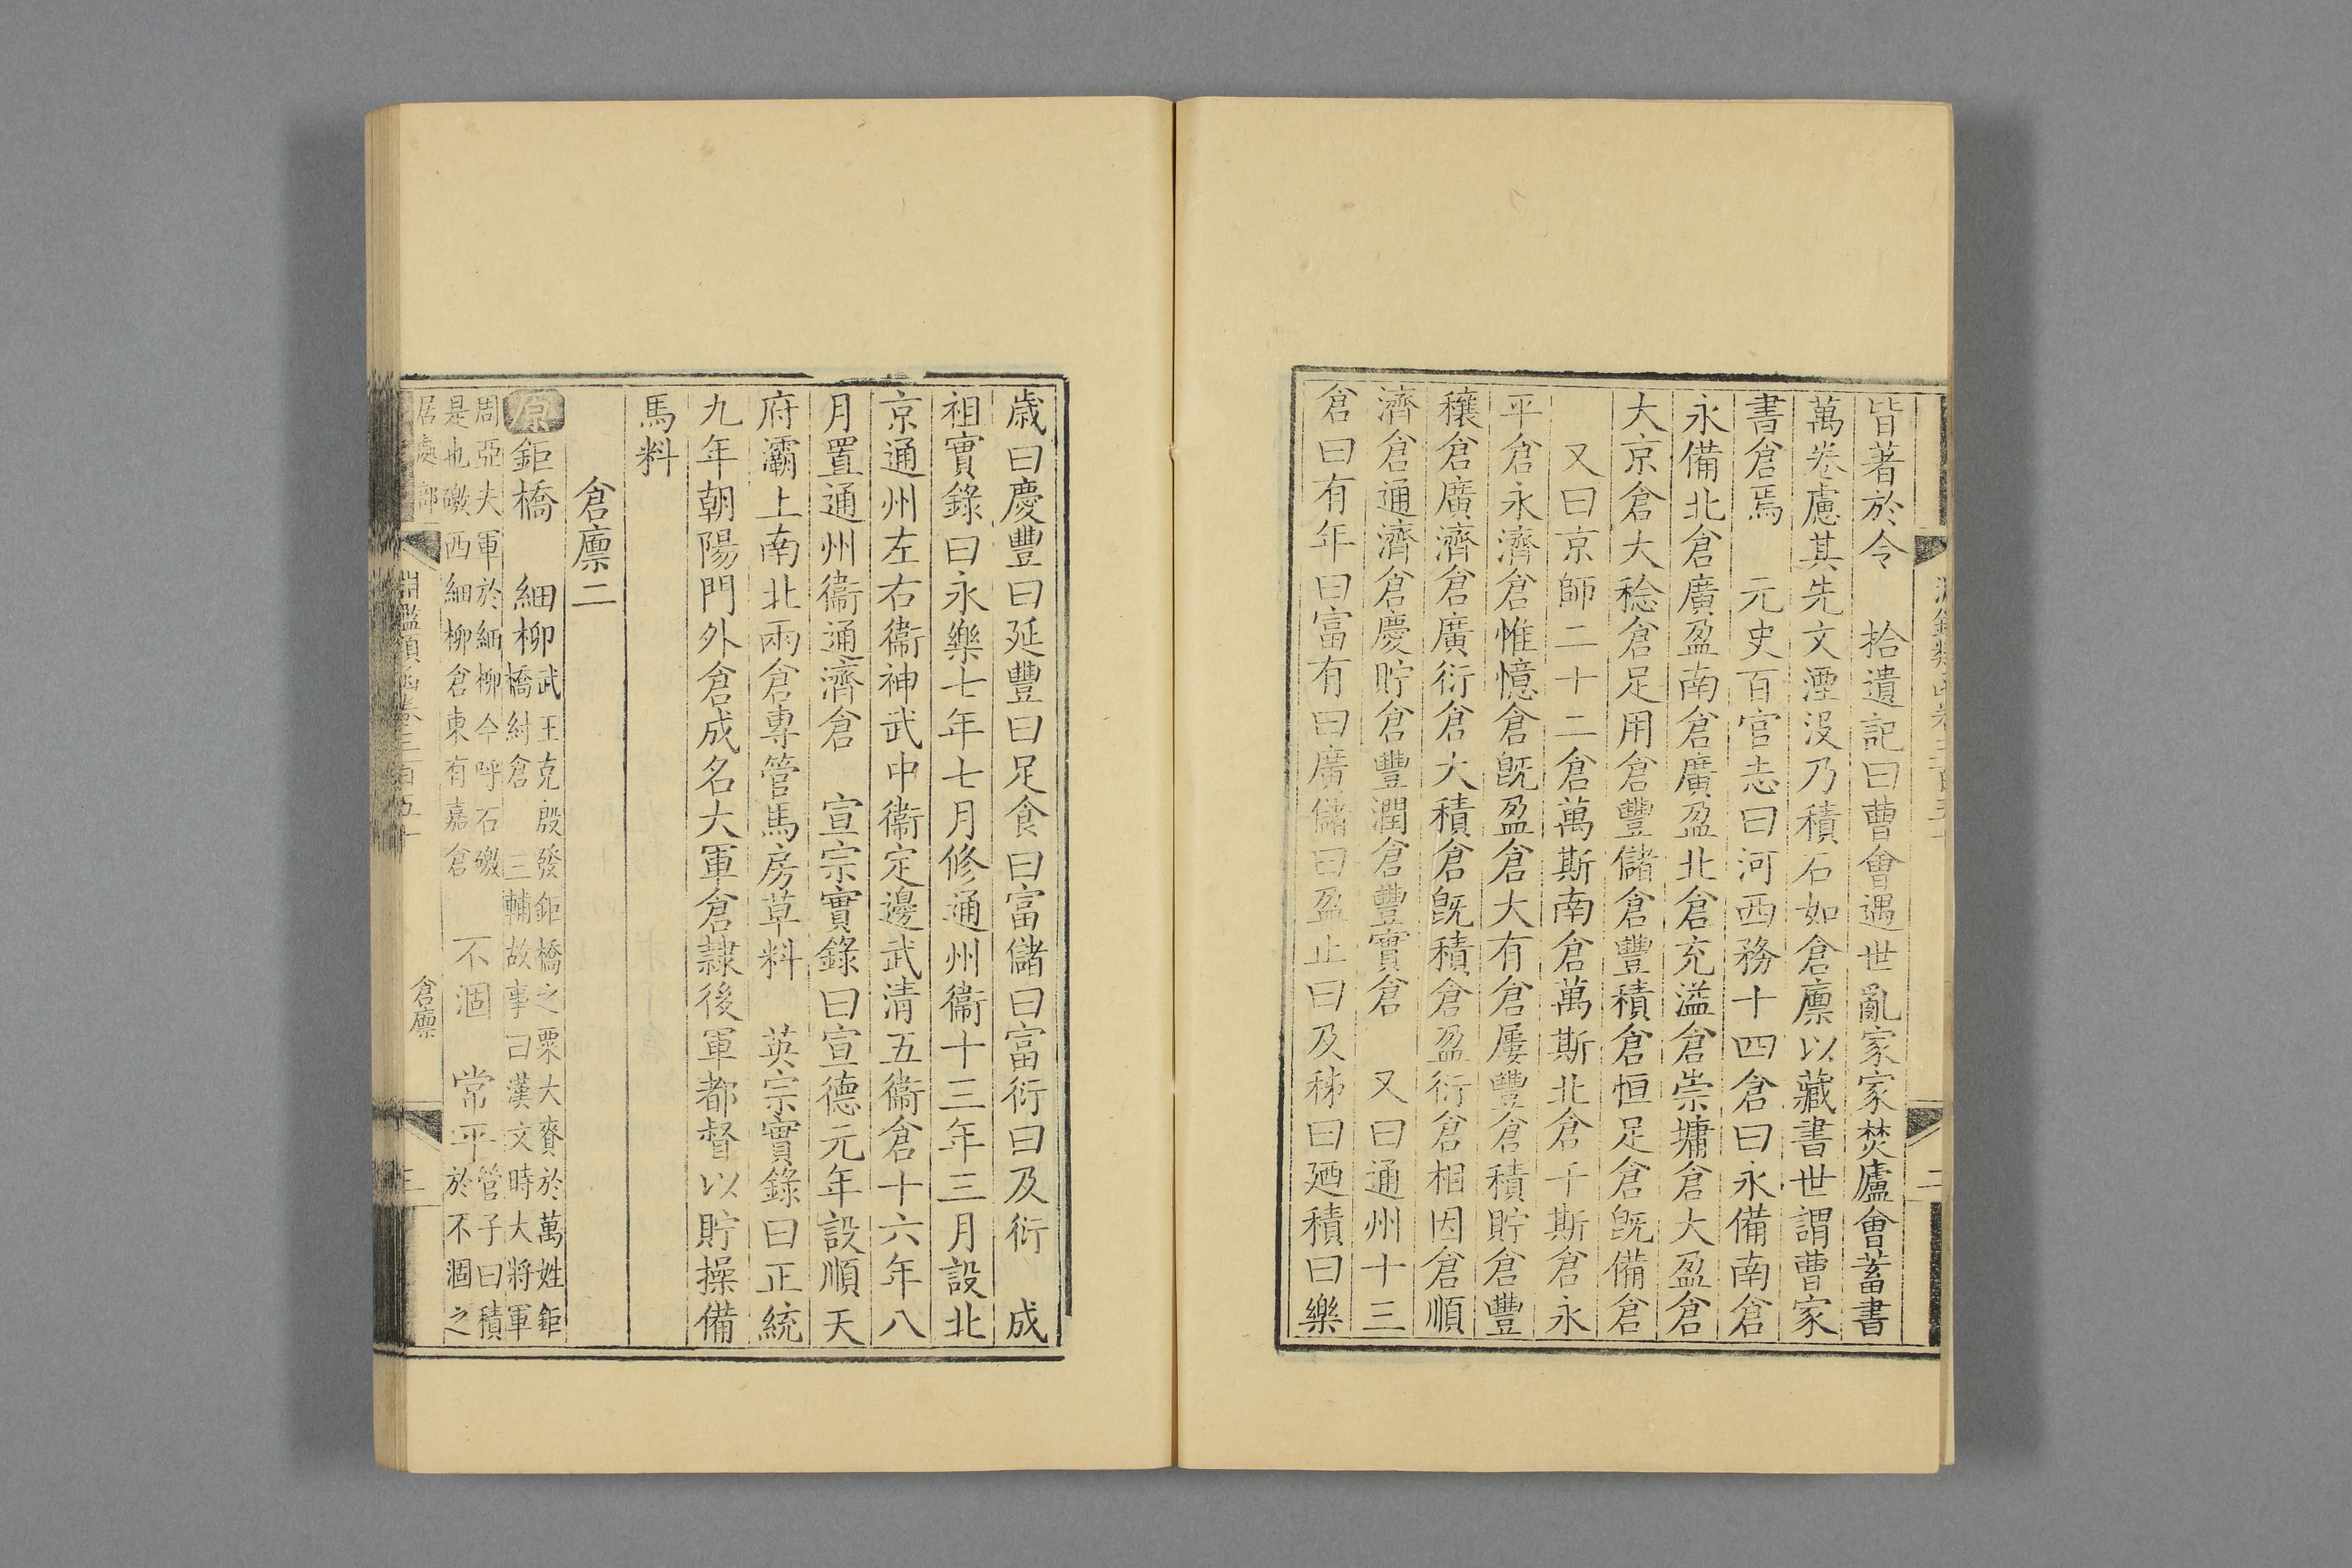 皆著於令　拾遺記曰曹曾遇世亂家家焚廬曾蓄書
萬卷慮其先文湮沒乃積石如倉廪以藏書世謂曹家
書倉焉　元史百官志曰河西務十四倉曰永備南倉
永備北倉廣盈南倉廣盈北倉充溢倉崇墉倉大盈倉
大京倉大稔倉足用倉豐儲倉豐積倉恒足倉旣備倉
又曰京師二十二倉萬斯南倉萬斯北倉千斯倉永
平倉永濟倉惟憶倉旣盈倉大有倉屢豐倉積貯倉豐
穰倉廣濟倉廣衍倉大積倉旣積倉盈衍倉相因倉順
濟倉通濟倉慶貯倉豐潤倉豐實倉　又曰通州十三
倉曰有年曰富有曰廣儲曰盈止曰及秭曰廼積曰樂
二
歳曰慶豐曰延豐曰足食曰富儲曰富衍曰及衍　成
祖實錄曰永樂七年七月修通州衞十三年三月設北
京通州左右衞神武中衞定邊武清五衞倉十六年八
月置通州衞通濟倉　宣宗實錄曰宣德元年設順天
府灞上南北兩倉專管馬房草料　英宗實錄曰正統
九年朝陽門外倉成名大軍倉隷後軍都督以貯操備
馬料
倉廪二
原鉅橋　細柳武王克殷發鉅橋之粟大賚於萬姓鉅
橋紂倉　三輔故事曰漢文時大將軍
周亞夫軍於細柳今呼石礅
是也礅西細柳倉東有嘉倉　不涸　常平管子曰積
於不涸之
居處部
淵鑑類函卷三百五十
倉廪
三